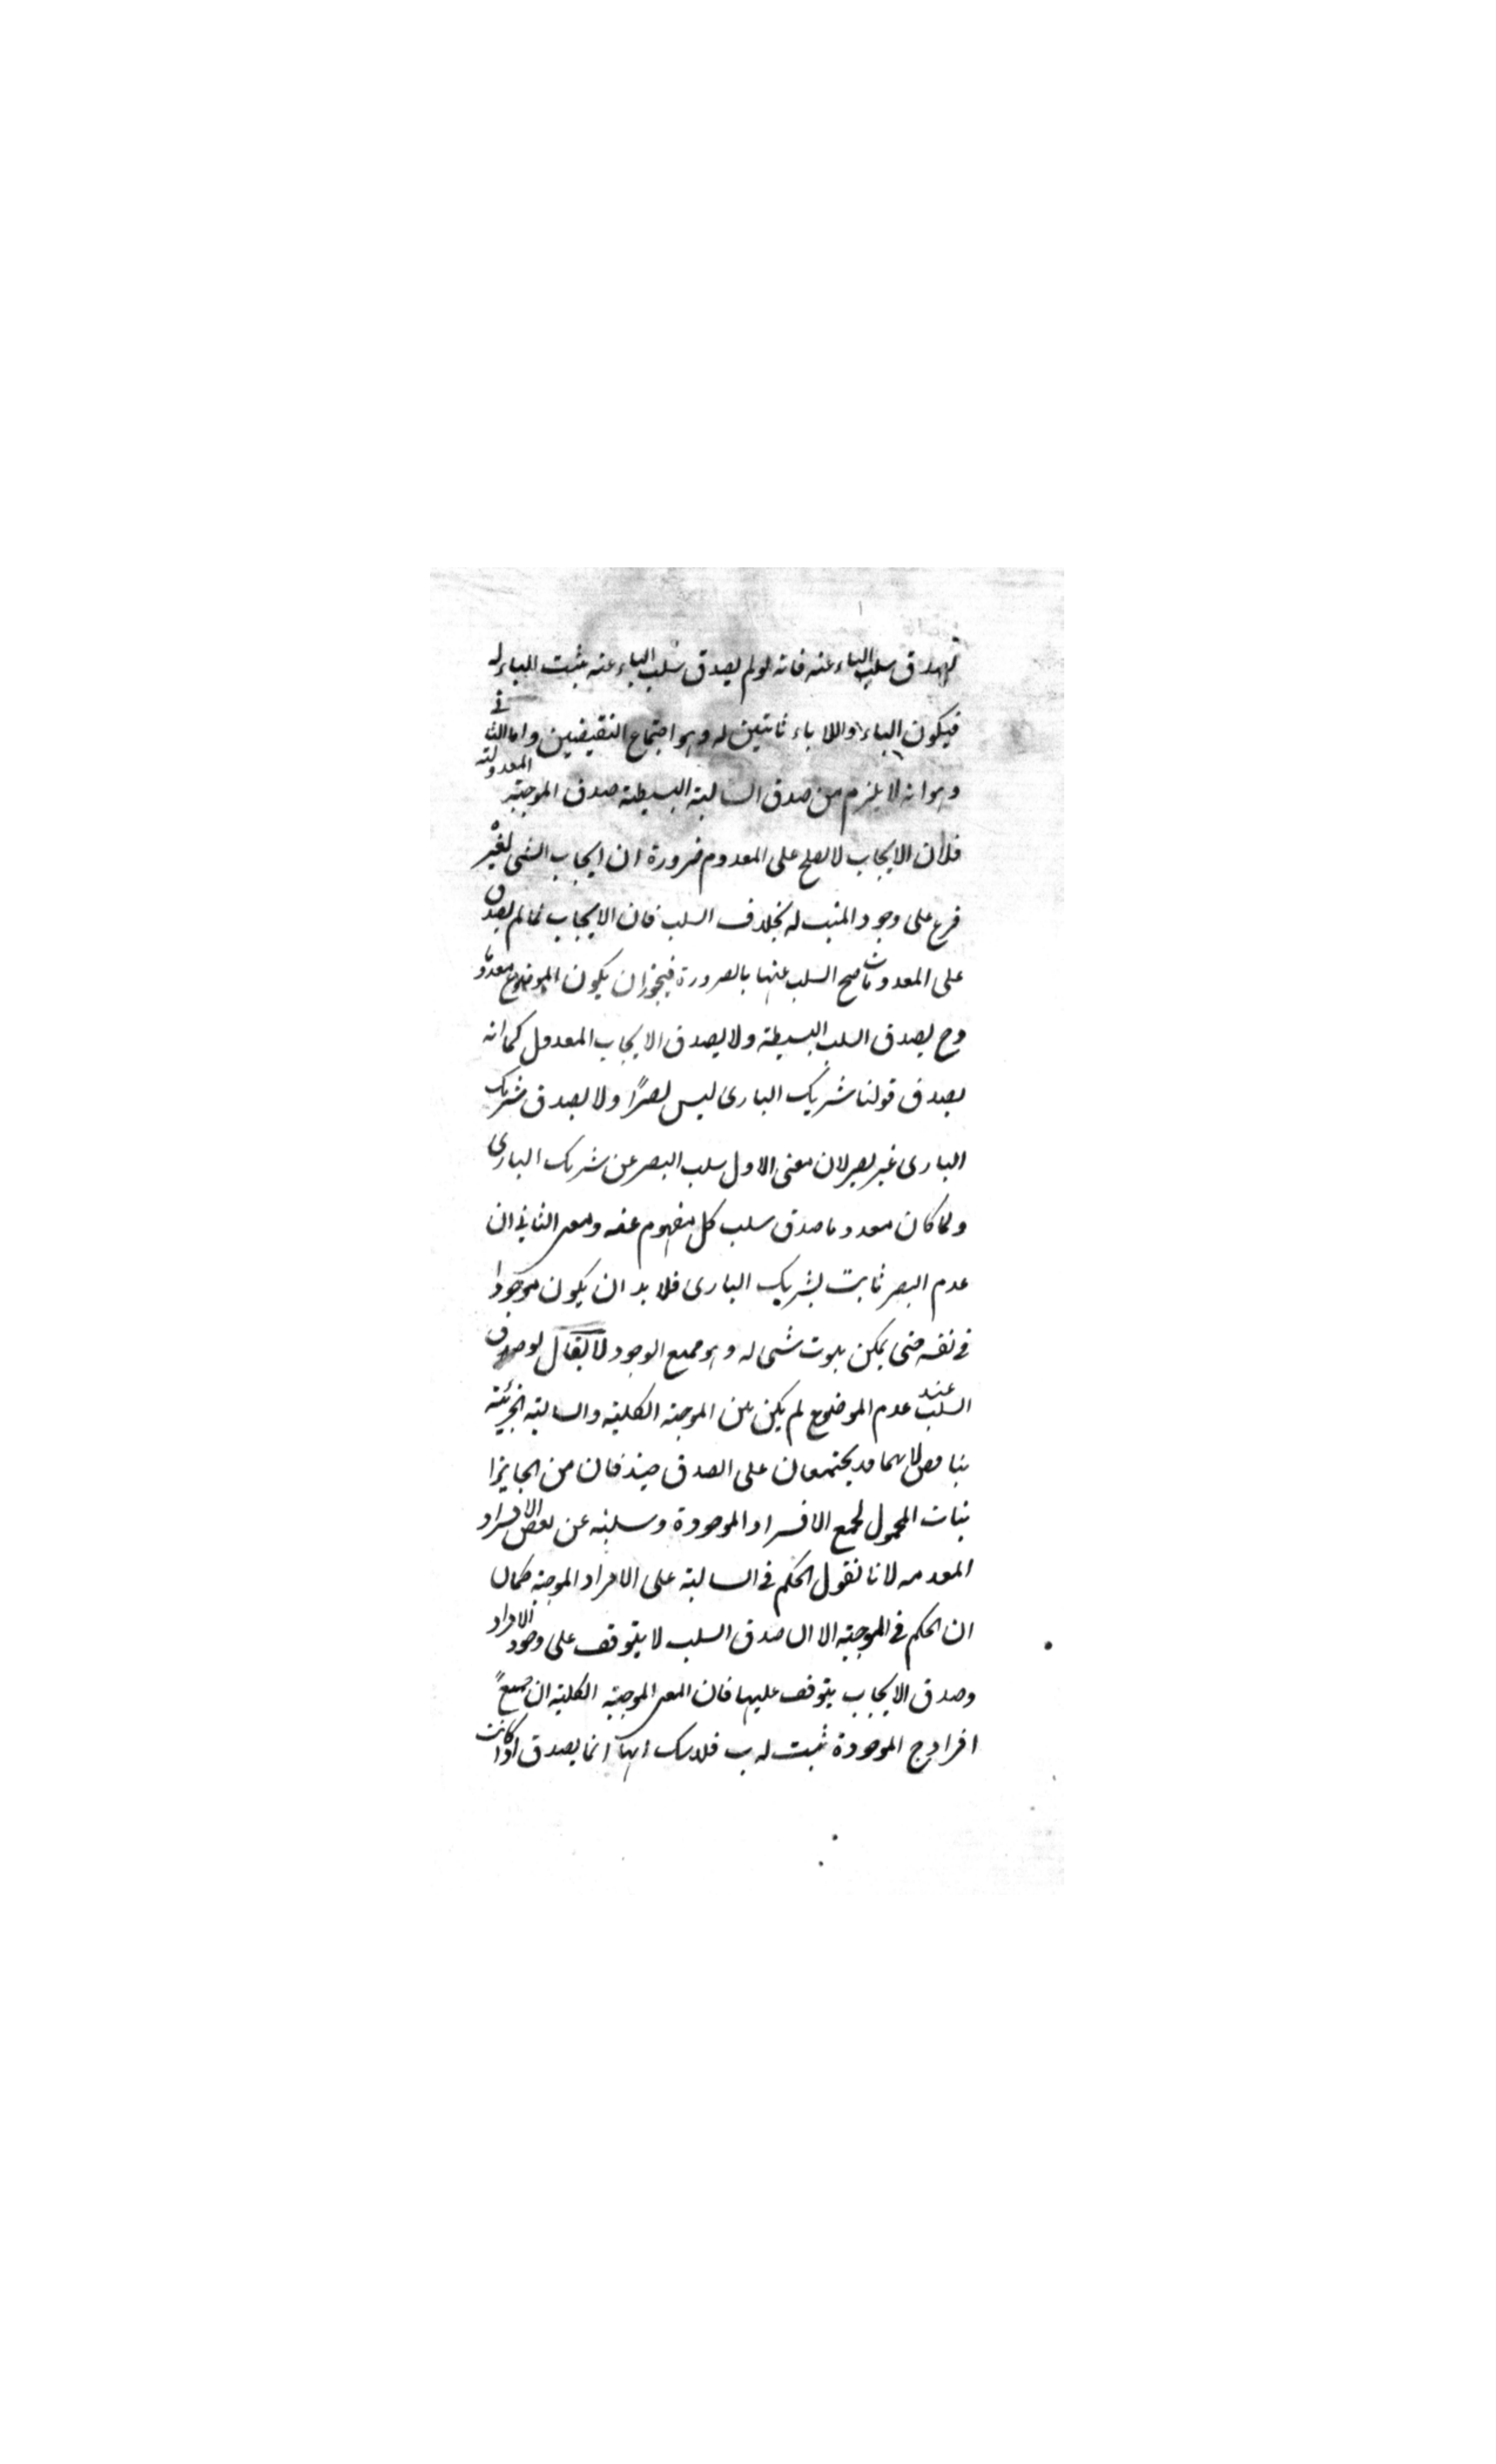 يصدق سلب الباء عنه فانه لو لم يصدق سلب الباء عنه ثبت الباء له
فيكون الباء واللاباء ثابتين له وهو اجتماع النقيضين واما الثانى
وهو انه لا يلزم من صدق السالبة البسيطة صدق الموجبة المعدولة
فلان الايجاب لا يصح على المعدوم ضرورة ان ايجاب الشى لغيره
فرع على وجود المثبت له بخلاف السلب فان الايجاب لما لم يصدق
على المعدومات صح السلب عنها بالضرورة فيجوز ان يكون الموضوع معدوما
وح يصدق السلب البسيطة ولا يصدق الايجاب المعدول كما انه
يصدق قولنا شريك البارى ليس بصرًا ولا يصدق شريك
البارى غير بصير لان معنى الاول سلب البصر عن شريك البارى
ولما كان معدوما صدق سلب كل مفهوم عنه ومعنى الثانى ان
عدم البصر ثابت لشريك البارى فلا بد ان يكون موجودا
فى نفسه حتى يمكن ثبوت شى له وهو ممتنع الوجود لا يقال لو صدق
السلب عند عدم الموضوع لم يكن بين الموجبة الكلية والسالبة الجزئية
تناقض لانهما قد يجتمعان على الصدق حينئذ فان من الجايز ا
ثبات المحمول لجميع الافراد الموجودة وسلبه عن بعض الافراد
المعدومه لانا نقول الحكم فى السالبة على الافراد الموجبة كما
ان الحكم فى الموجبة الا ان صدق السلب لا يتوقف على وجود الافراد
وصدق الايجاب يتوقف عليها فان المعنى الموجبة الكلية ان جميع
افراد ج الموجودة ثبت له ب فلا شك انها انما يصدق اذا كانت